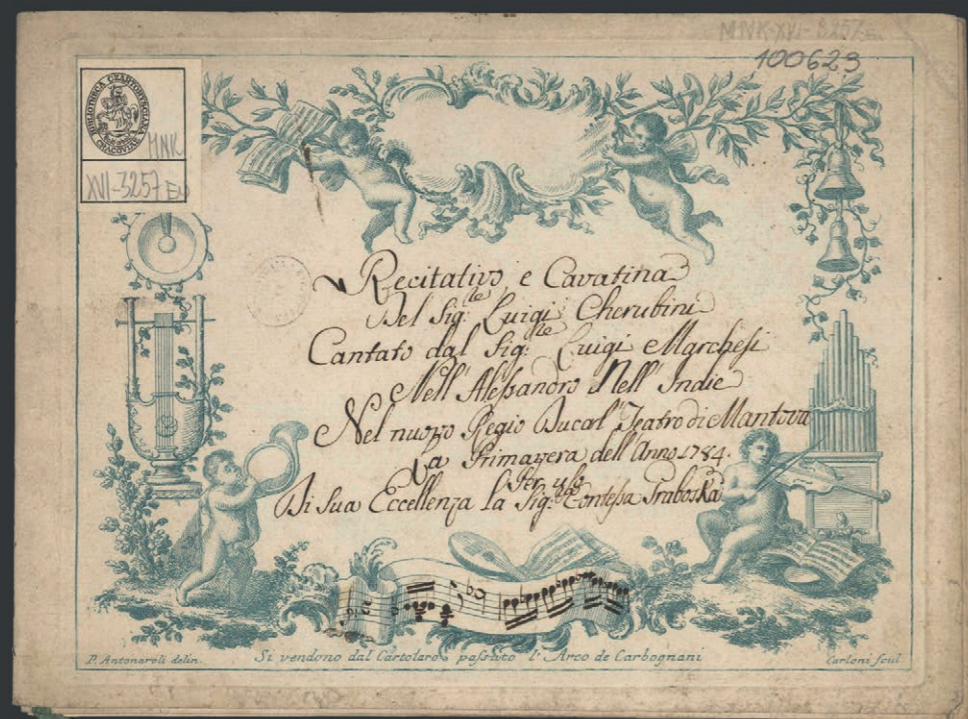 MNK-XVI-3257 Eu
100623
BIBLIOTHECA CZARTORYSCIANA CRACOVIAE
MNK
XVI-3257 Eu
Recitativo, e Cavatina
Del Sig:le Luigi Cherubini
Cantato dal Sig:re Luigi Marchesi
Nell' Alessandro Nell' Indie
Nel nuovo Regio Ducal' Teatro di Mantova
La Primavera dell'Anno 1784.
Per uso
Di Sua Eccellenza La Sig:ra Contessa Traboska
P. Antonaroli delin.
Si vendono dal Cartolaro passato l'Arco de Carbognani
Carloni scul